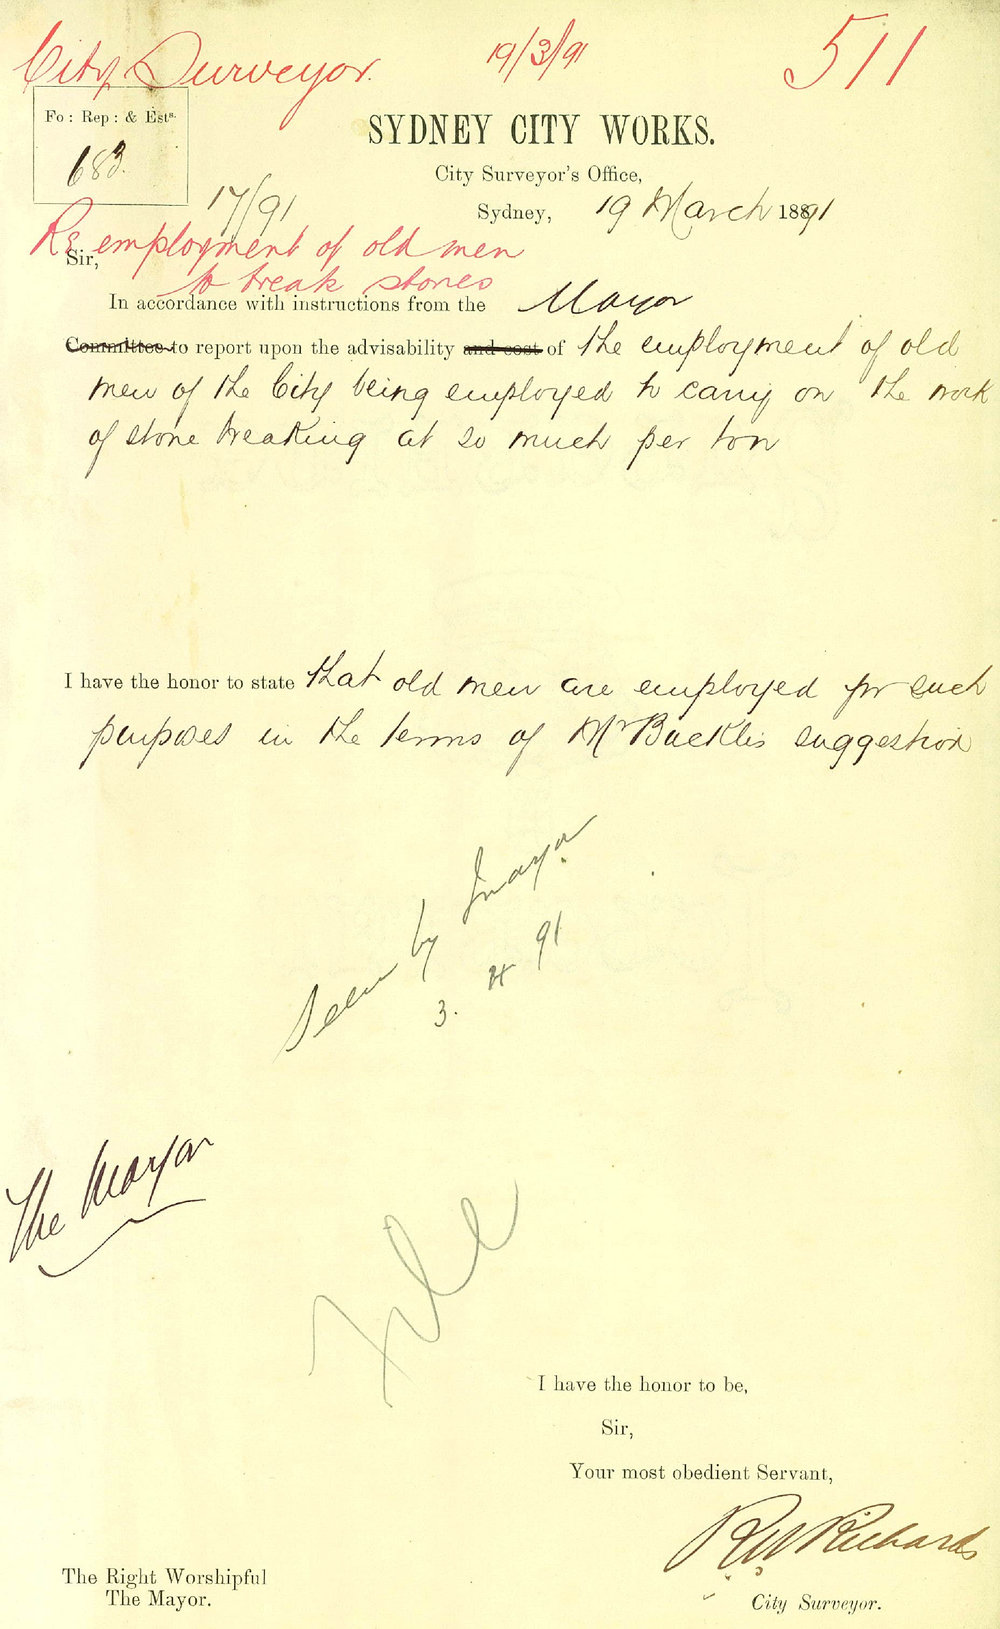 City Surveyor.
19/3/91
511
Fo: Rep: & Ests.
683.
17/91
SYDNEY CITY WORKS.
City Surveyor's Office,
Sydney, 19 March 1891
Re employment of old men
to break stones
Sir,
In accordance with instructions from the Mayor
Committee to report upon the advisability and cost of the employment of old
men of the City being employed to carry on the work
of stone breaking at so much per ton
I have the honor to state that old men are employed for such
purposes in the terms of Mr Buckle's suggestion
Seen by Mayor
3. 4 91
The Mayor
File
I have the honor to be,
Sir,
Your most obedient Servant,
RW Richards
City Surveyor.
The Right Worshipful
The Mayor.